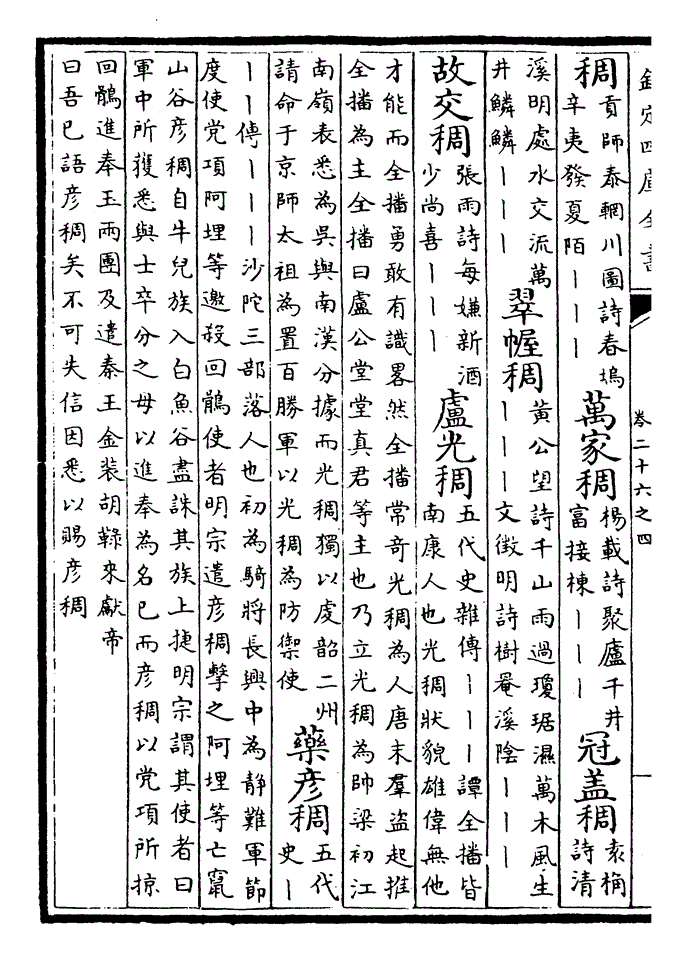 欽定四庫全書
卷二十六之四
稠
貢師泰輞川圖詩春塢
辛夷發夏陌丨丨丨
萬家稠
楊載詩聚廬千井
富接棟丨丨丨
冠盖稠
袁桷
詩清
溪明處水交流萬
井鱗鱗丨丨丨
翠幄稠
黄公望詩千山雨過瓊琚濕萬木風生
丨丨丨文徵明詩樹罨溪陰丨丨丨
故交稠
張雨詩每嫌新酒
少尚喜丨丨丨
盧光稠
五代史雜傳丨丨丨譚全播皆
南康人也光稠狀貌雄偉無他
才能而全播勇敢有識畧然全播常奇光稠為人唐末羣盗起推
全播為主全播曰盧公堂堂真君等主也乃立光稠為帥梁初江
南嶺表悉為吳與南漢分據而光稠獨以虔韶二州
請命于京師太祖為置百勝軍以光稠為防禦使
藥彥稠
五代
史丨
丨丨傳丨丨丨沙陀三部落人也初為騎將長興中為靜難軍節
度使党項阿埋等邀殺回鶻使者明宗遣彥稠擊之阿埋等亡竄
山谷彥稠自牛兒族入白魚谷盡誅其族上捷明宗謂其使者曰
軍中所獲悉與士卒分之毋以進奉為名已而彥稠以党項所掠
回鶻進奉玉兩團及遣秦王金装胡䩮來獻帝
曰吾已語彥稠矣不可失信因悉以賜彥稠